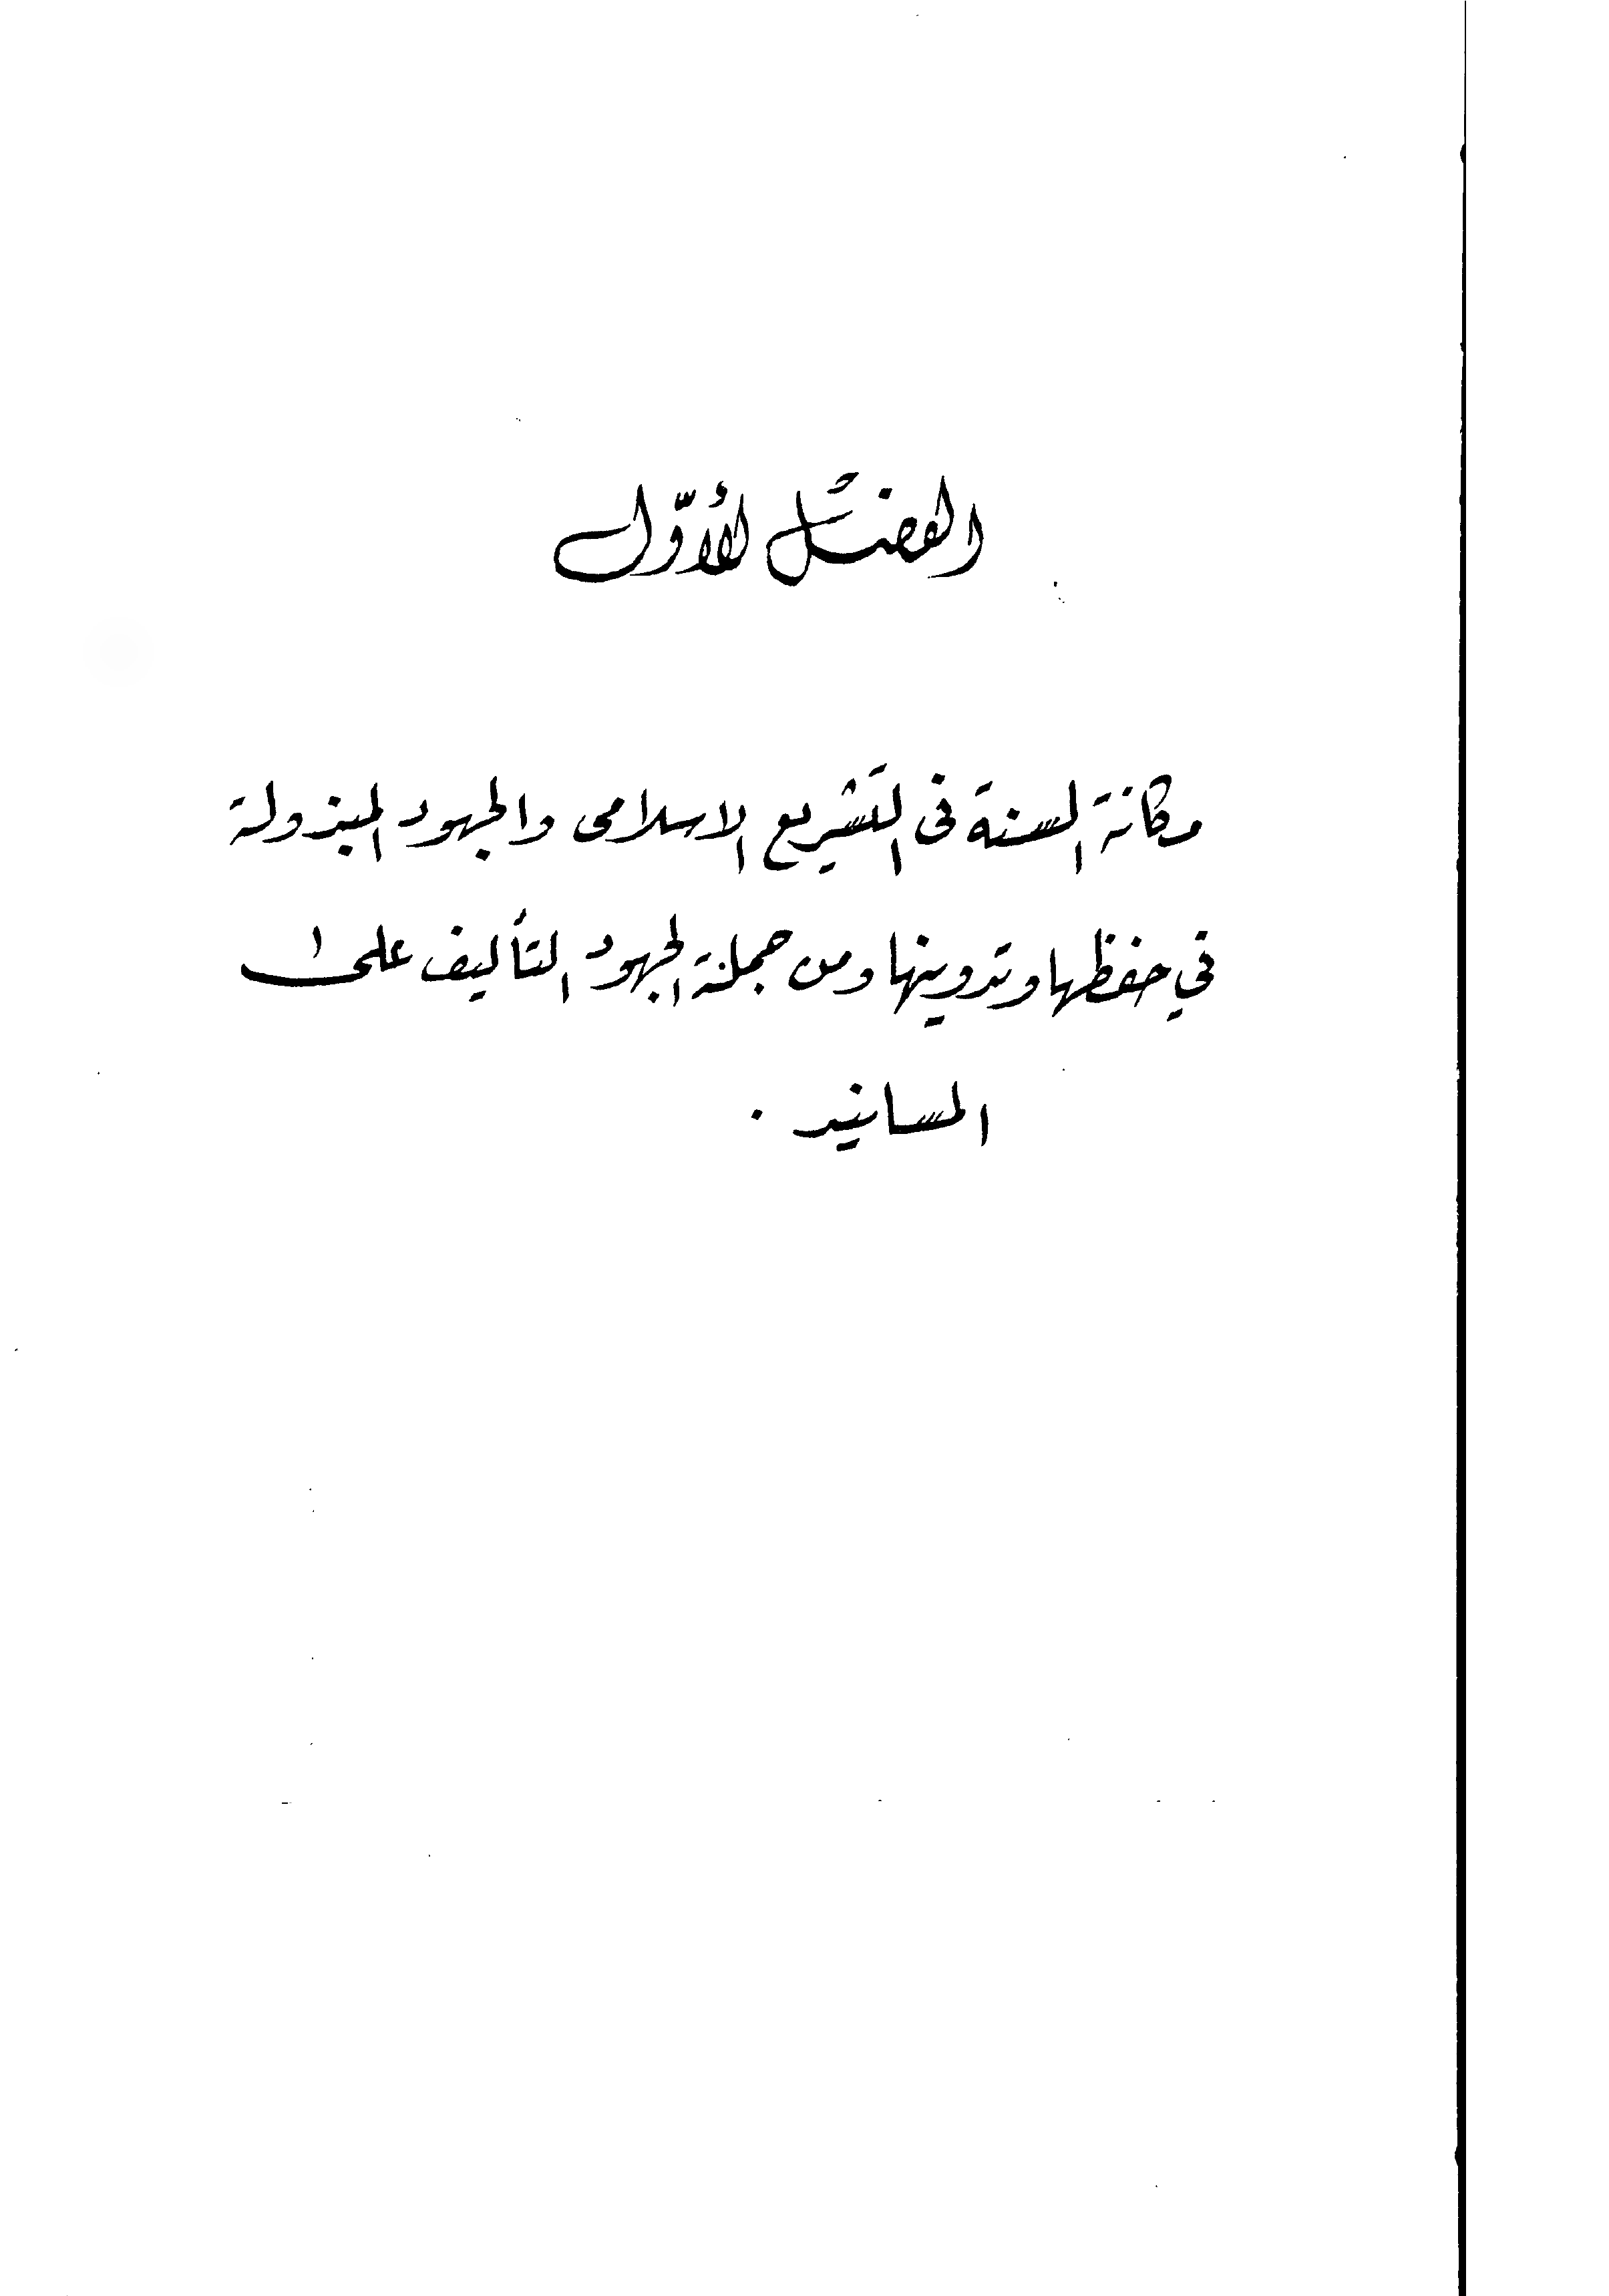 الفصل الأوّل
مكانة السنة فى التشريع الاسلامى والجهود المبذولة
في حفظها وتدوينها ومن جملة الجهود التأليف على
المسانيد .